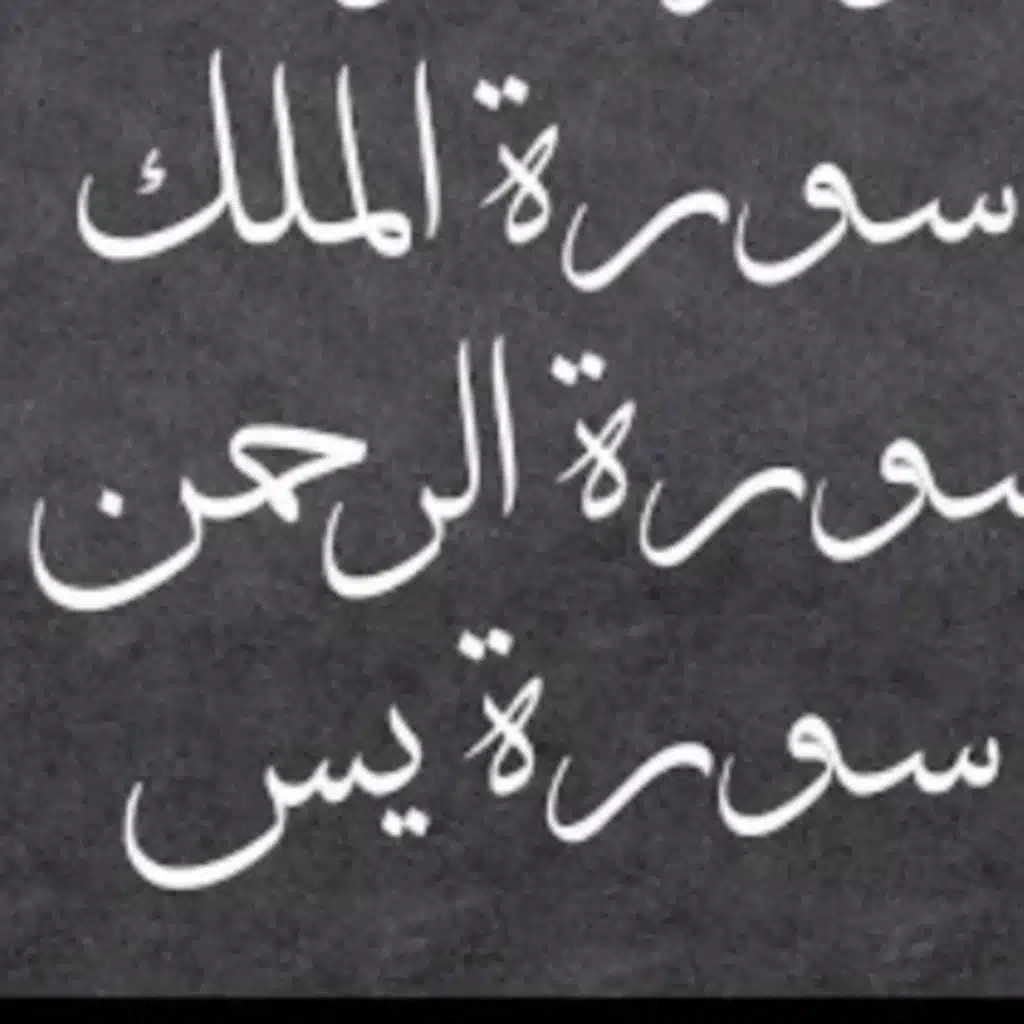 سورة الملك
سورة الرحمن
سورة يس